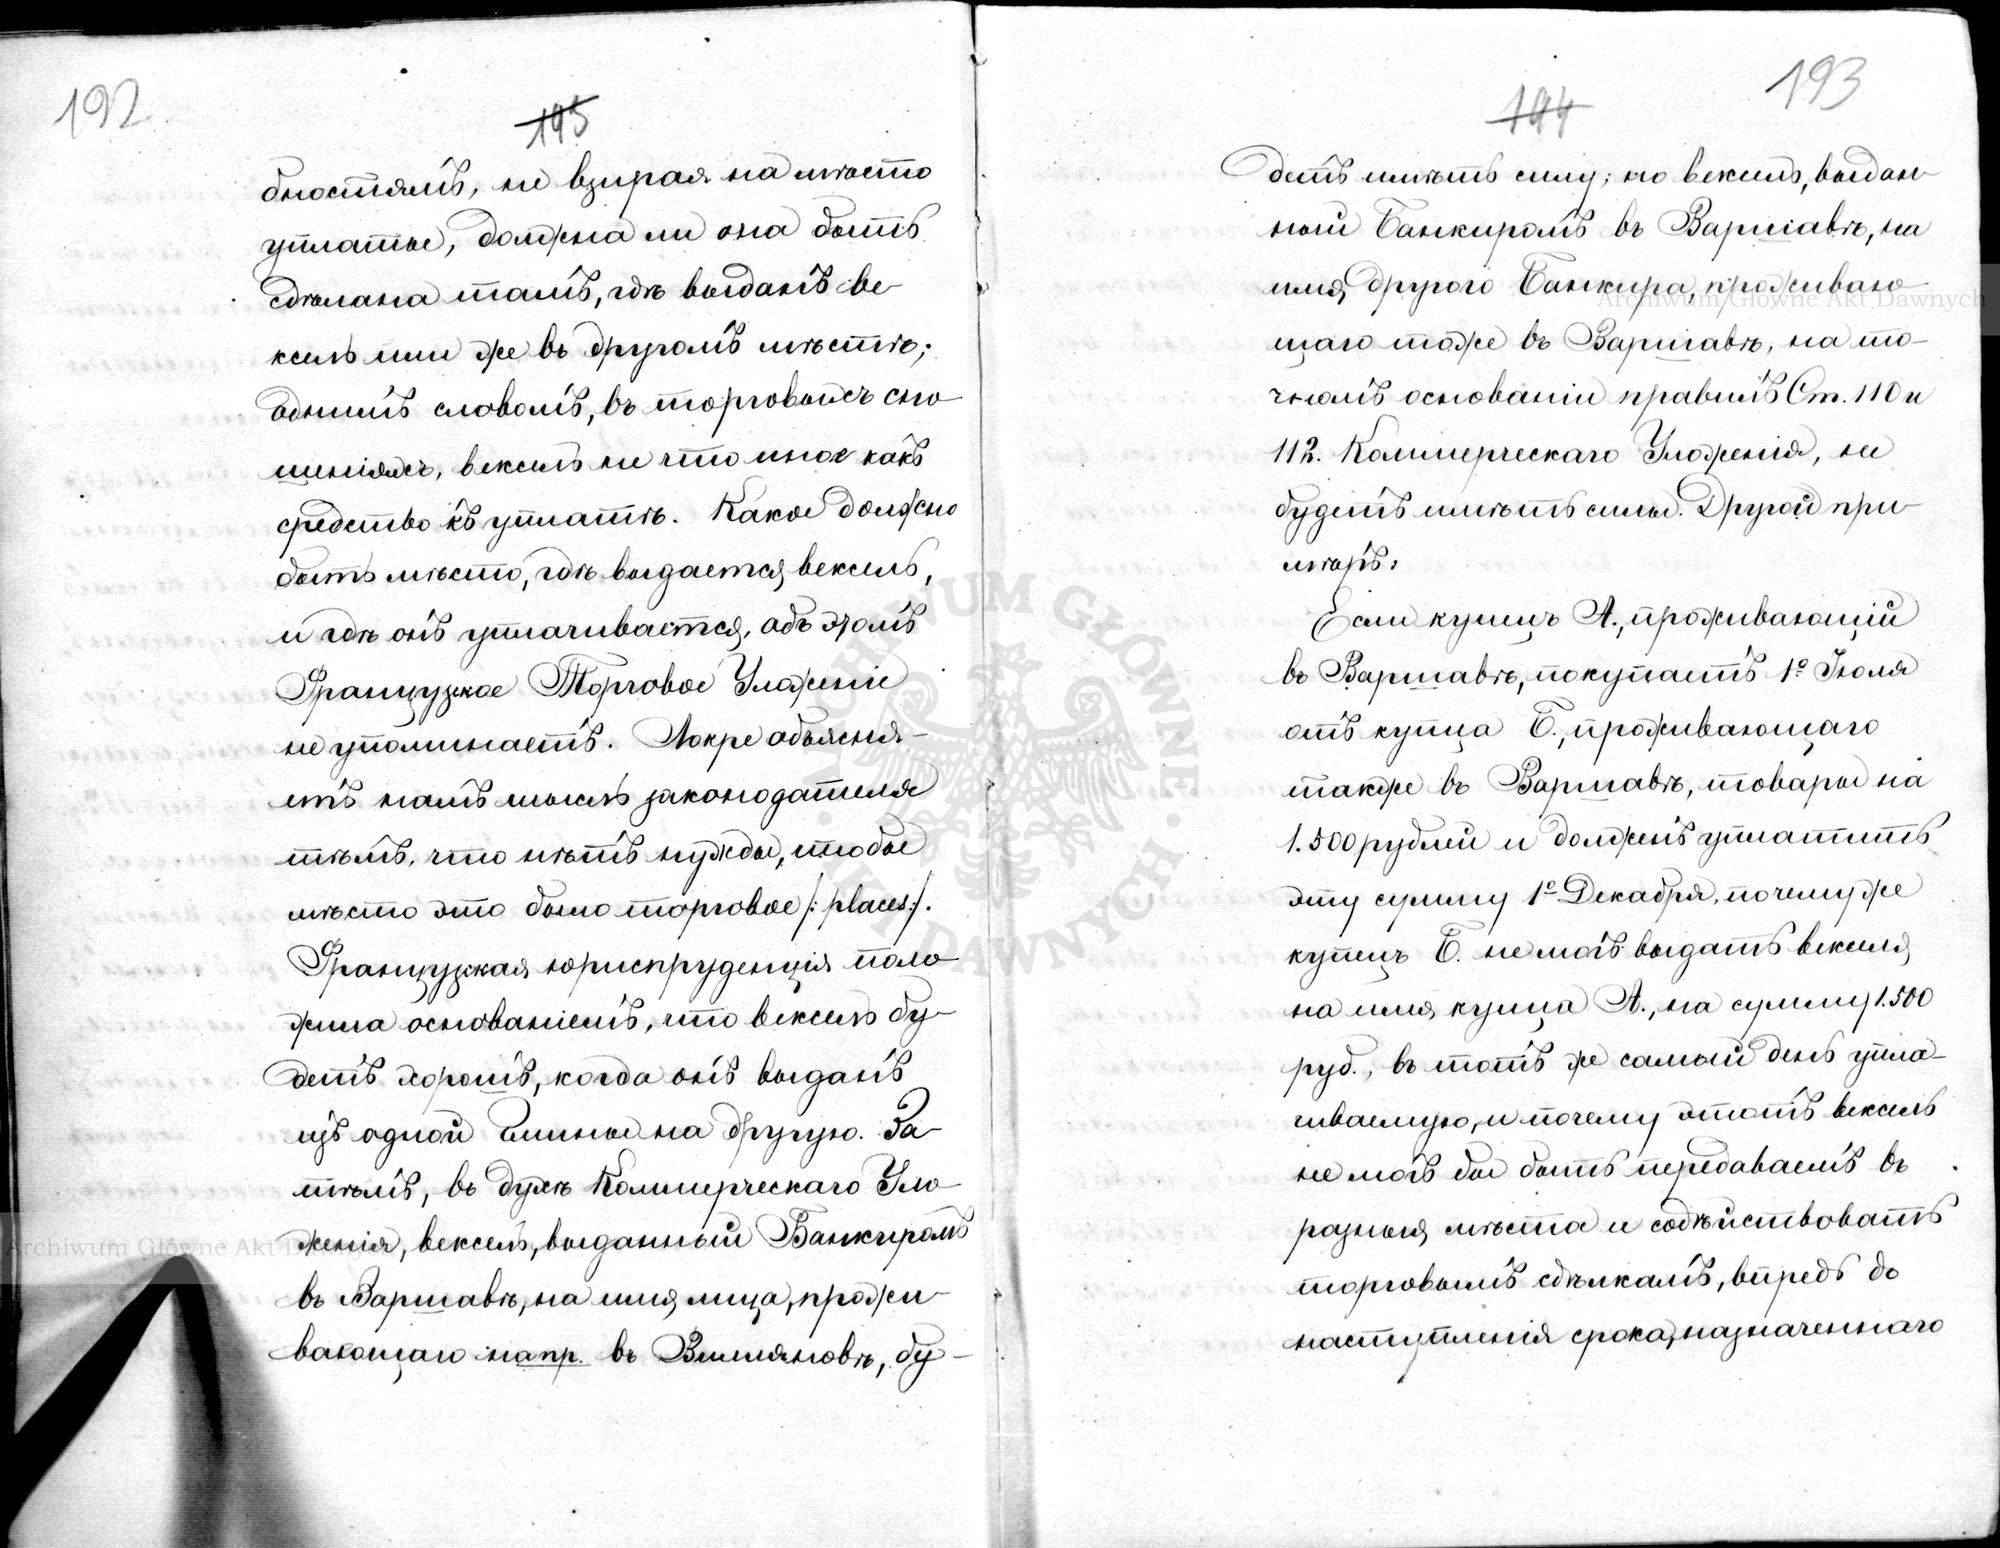 192
195
бностямъ, не взирая на мѣсто
уплаты, должна ли она быть
сдѣлана тамъ, гдѣ выданъ ве
ксель или же въ другомъ мѣстѣ;
однимъ словомъ, въ торговыхъ сно
шеніяхъ, вексель не что иное какъ
средство къ уплатѣ. Какое должно
быть мѣсто, гдѣ выдается вексель,
и гдѣ онъ уплачивается, объ этомъ
Французское Торговое Уложеніе
не упоминаетъ. Локре объясня-
етъ намъ мысль законодателя
тѣмъ, что нѣтъ нужды, чтобы
мѣсто это было торговое /: places :/.
Французская юриспруденція поло
жила основаніемъ, что вексель бу-
детъ хорошъ, когда онъ выданъ
изъ одной Гмины на другую. За-
тѣмъ, въ духѣ Коммерческаго Уло
женія, вексель, выданный Банкиромъ
въ Варшавѣ, на имя лица, прожи-
вающаго напр. въ Вилляновѣ, бу-
193
194
детъ имѣть силу; но вексель, выдан-
ный Банкиромъ въ Варшавѣ, на
имя другого Банкира, проживаю
щаго тоже въ Варшавѣ, на то-
чномъ основаніи правилъ Ст. 110 и
112. Коммерческаго Уложенія, не
будетъ имѣть силы. Другой при-
мѣръ:
Если купецъ А., проживающій
въ Варшавѣ, покупаетъ 1º Іюля
отъ купца Б., проживающаго
также въ Варшавѣ, товары на
1.500 рублей и долженъ уплатить
эту сумму 1º Декабря, почему же
купецъ Б. не могъ выдать векселя
на имя купца А., на сумму 1.500
руб., въ тотъ же самый день упла-
чиваемую, и почему этотъ вексель
не могъ бы быть передаваемъ въ
разныя мѣста и содѣйствовать
торговымъ сдѣлкамъ, впредь до
наступленія срока, назначеннаго
Archiwum Główne Akt Dawnych
Archiwum Główne Akt Dawnych
ARCHIWUM GŁÓWNE AKT DAWNYCH